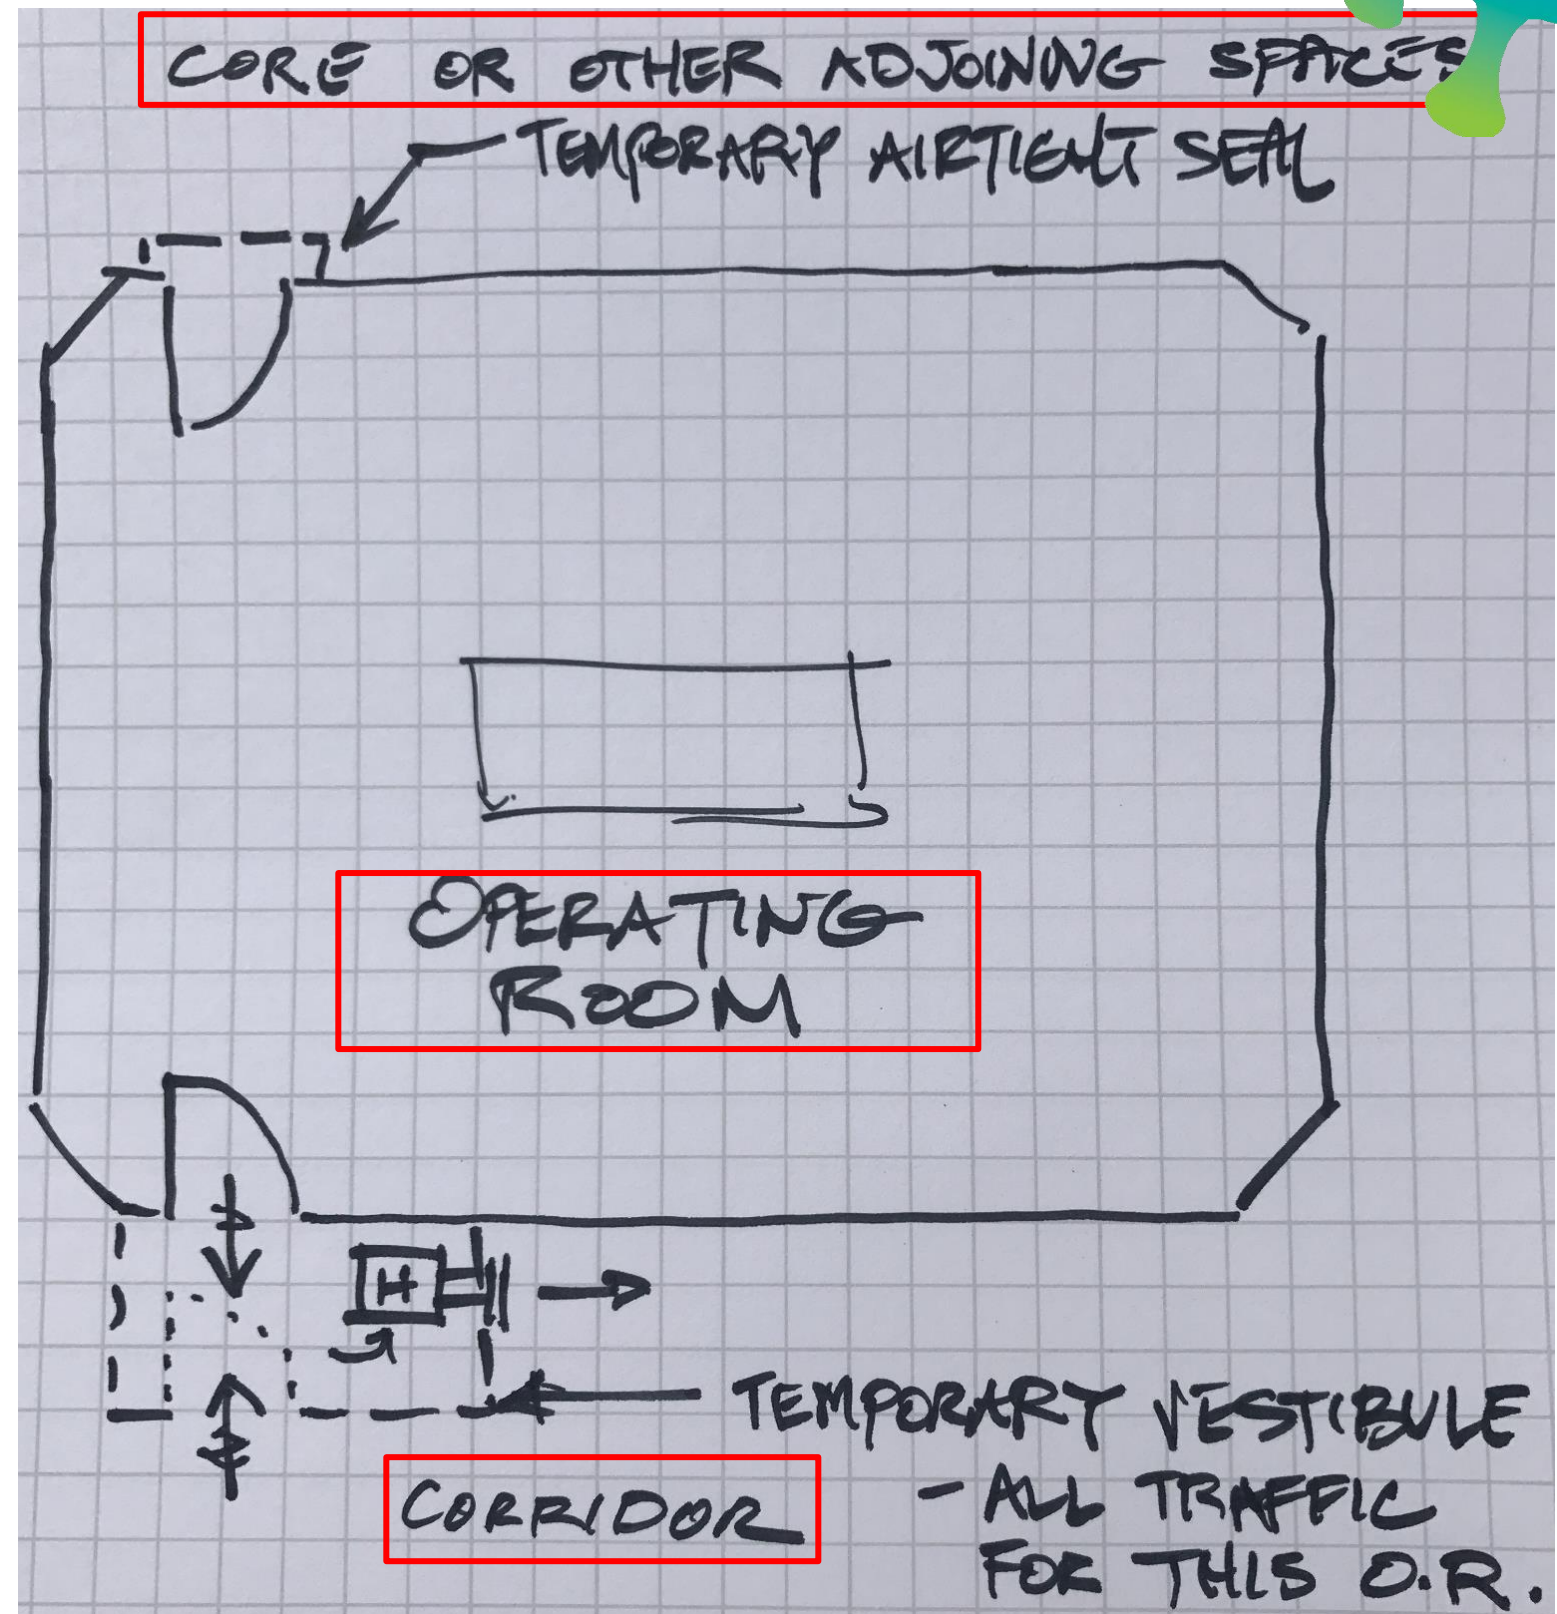 CORE OR OTHER ADJOINING SPACES
TEMPORARY AIRTIGHT SEAL
OPERATING
ROOM
H
TEMPORARY VESTIBULE
CORRIDOR
- ALL TRAFFIC
FOR THIS O.R.